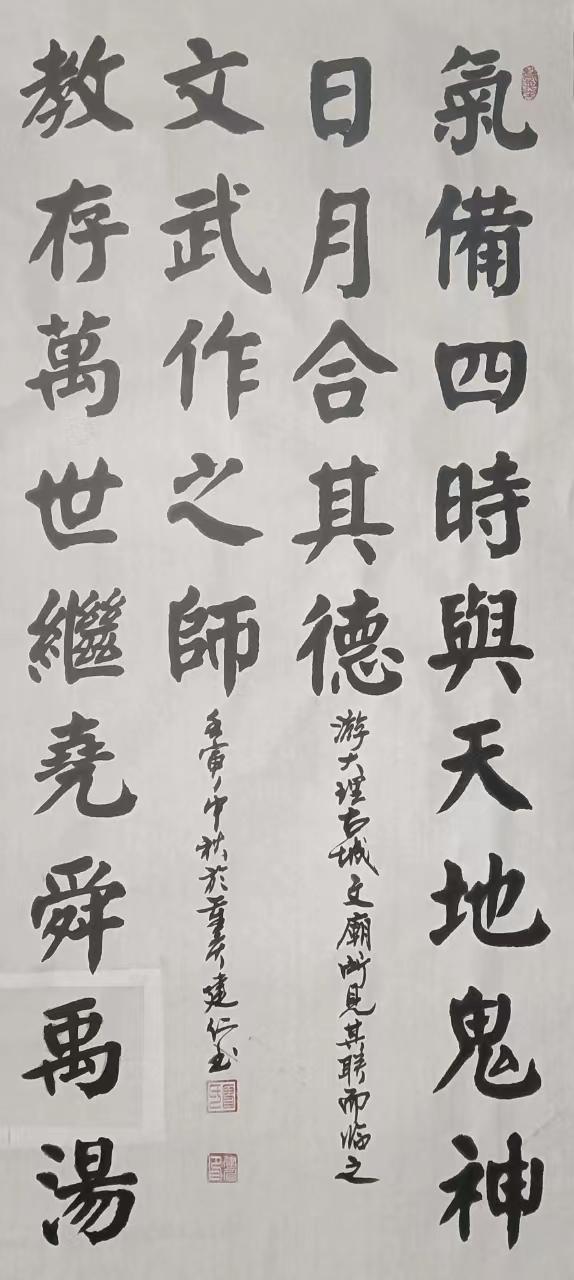 氣備四時與天地鬼神
日月合其德
游大理古城文廟所見其聯而临之
教存萬世繼堯舜禹湯
文武作之師
壬寅年中秋於重慶建仁书